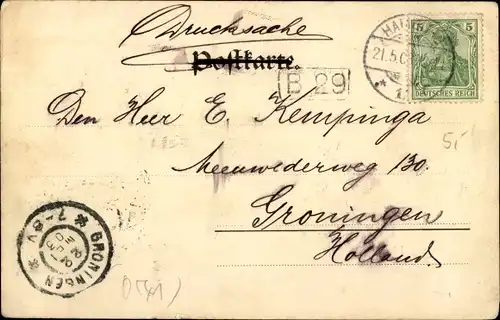 Drucksache
Postkarte.
5 5
DEUTSCHES REICH
21.5.0
B 29
Den Heer E. Kempinga
Meeuwederweg 130.
5,-
Groningen
Holland
GRONINGEN
7-8V